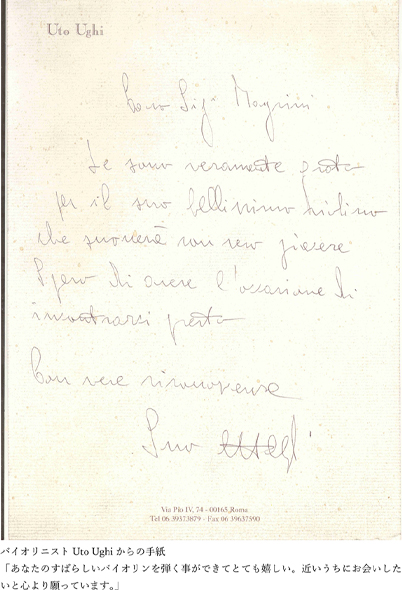 Uto Ughi
Caro Sig. Magrini
Le sono veramente grato
per il suo bellissimo violino
che suonerò con vero piacere
Spero di avere l'occasione di
incontrarci presto
Con vera riconoscenza
Suo
Via Pio IV, 74 - 00165, Roma
Tel 06 39373879 - Fax 06 39637590
バイオリニスト Uto Ughi からの手紙
「あなたのすばらしいバイオリンを弾く事ができてとても嬉しい。近いうちにお会いした
いと心より願っています。」